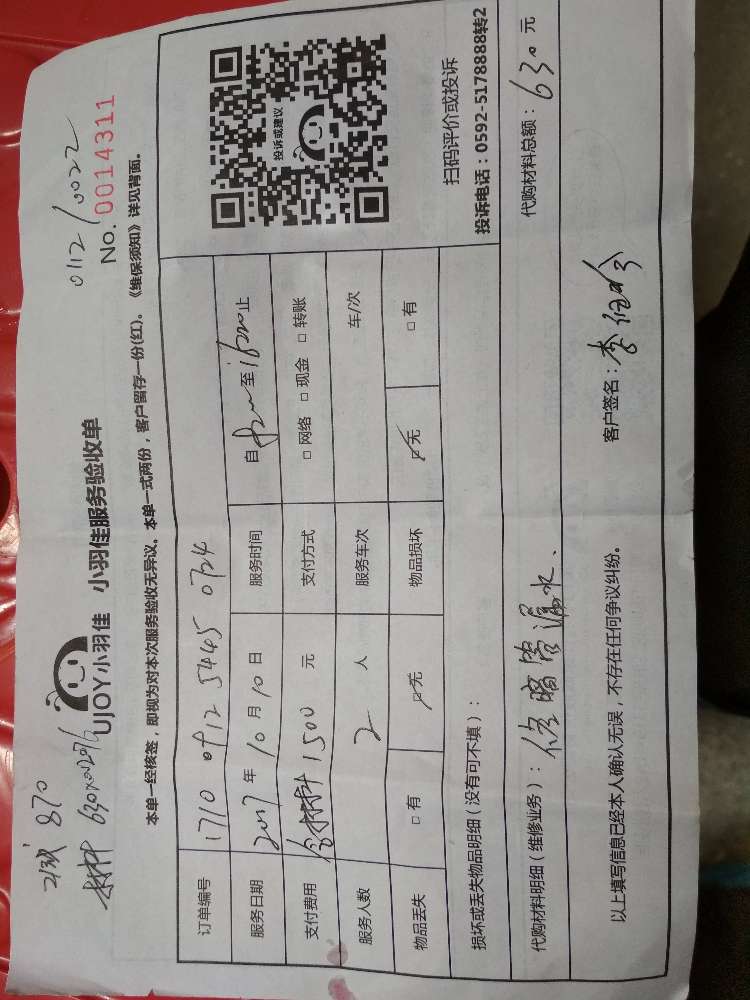 0112/0022
870
材料 630
UJOY小羽佳 小羽佳服务验收单
No. 0014311
本单一经核签，即视为对本次服务验收无异议。本单一式两份，客户留存一份(红)。《维保须知》详见背面。
订单编号 1710 0912 5445 0724
服务日期 2017年10月10日 服务时间 自 至 止
支付费用 含材料1500 元 支付方式 □ 网络 □ 现金 □ 转账
服务人数 2 人 服务车次 车/次
物品丢失 □ 有 □ 无 物品损坏 □ 无 □ 有
投诉或建议
扫码评价或投诉
投诉电话：0592-5178888转2
损坏或丢失物品明细（没有可不填）：
代购材料明细（维修业务）： 修暗管漏水. 代购材料总额：630 元
以上填写信息已经本人确认无误，不存在任何争议纠纷。 客户签名：